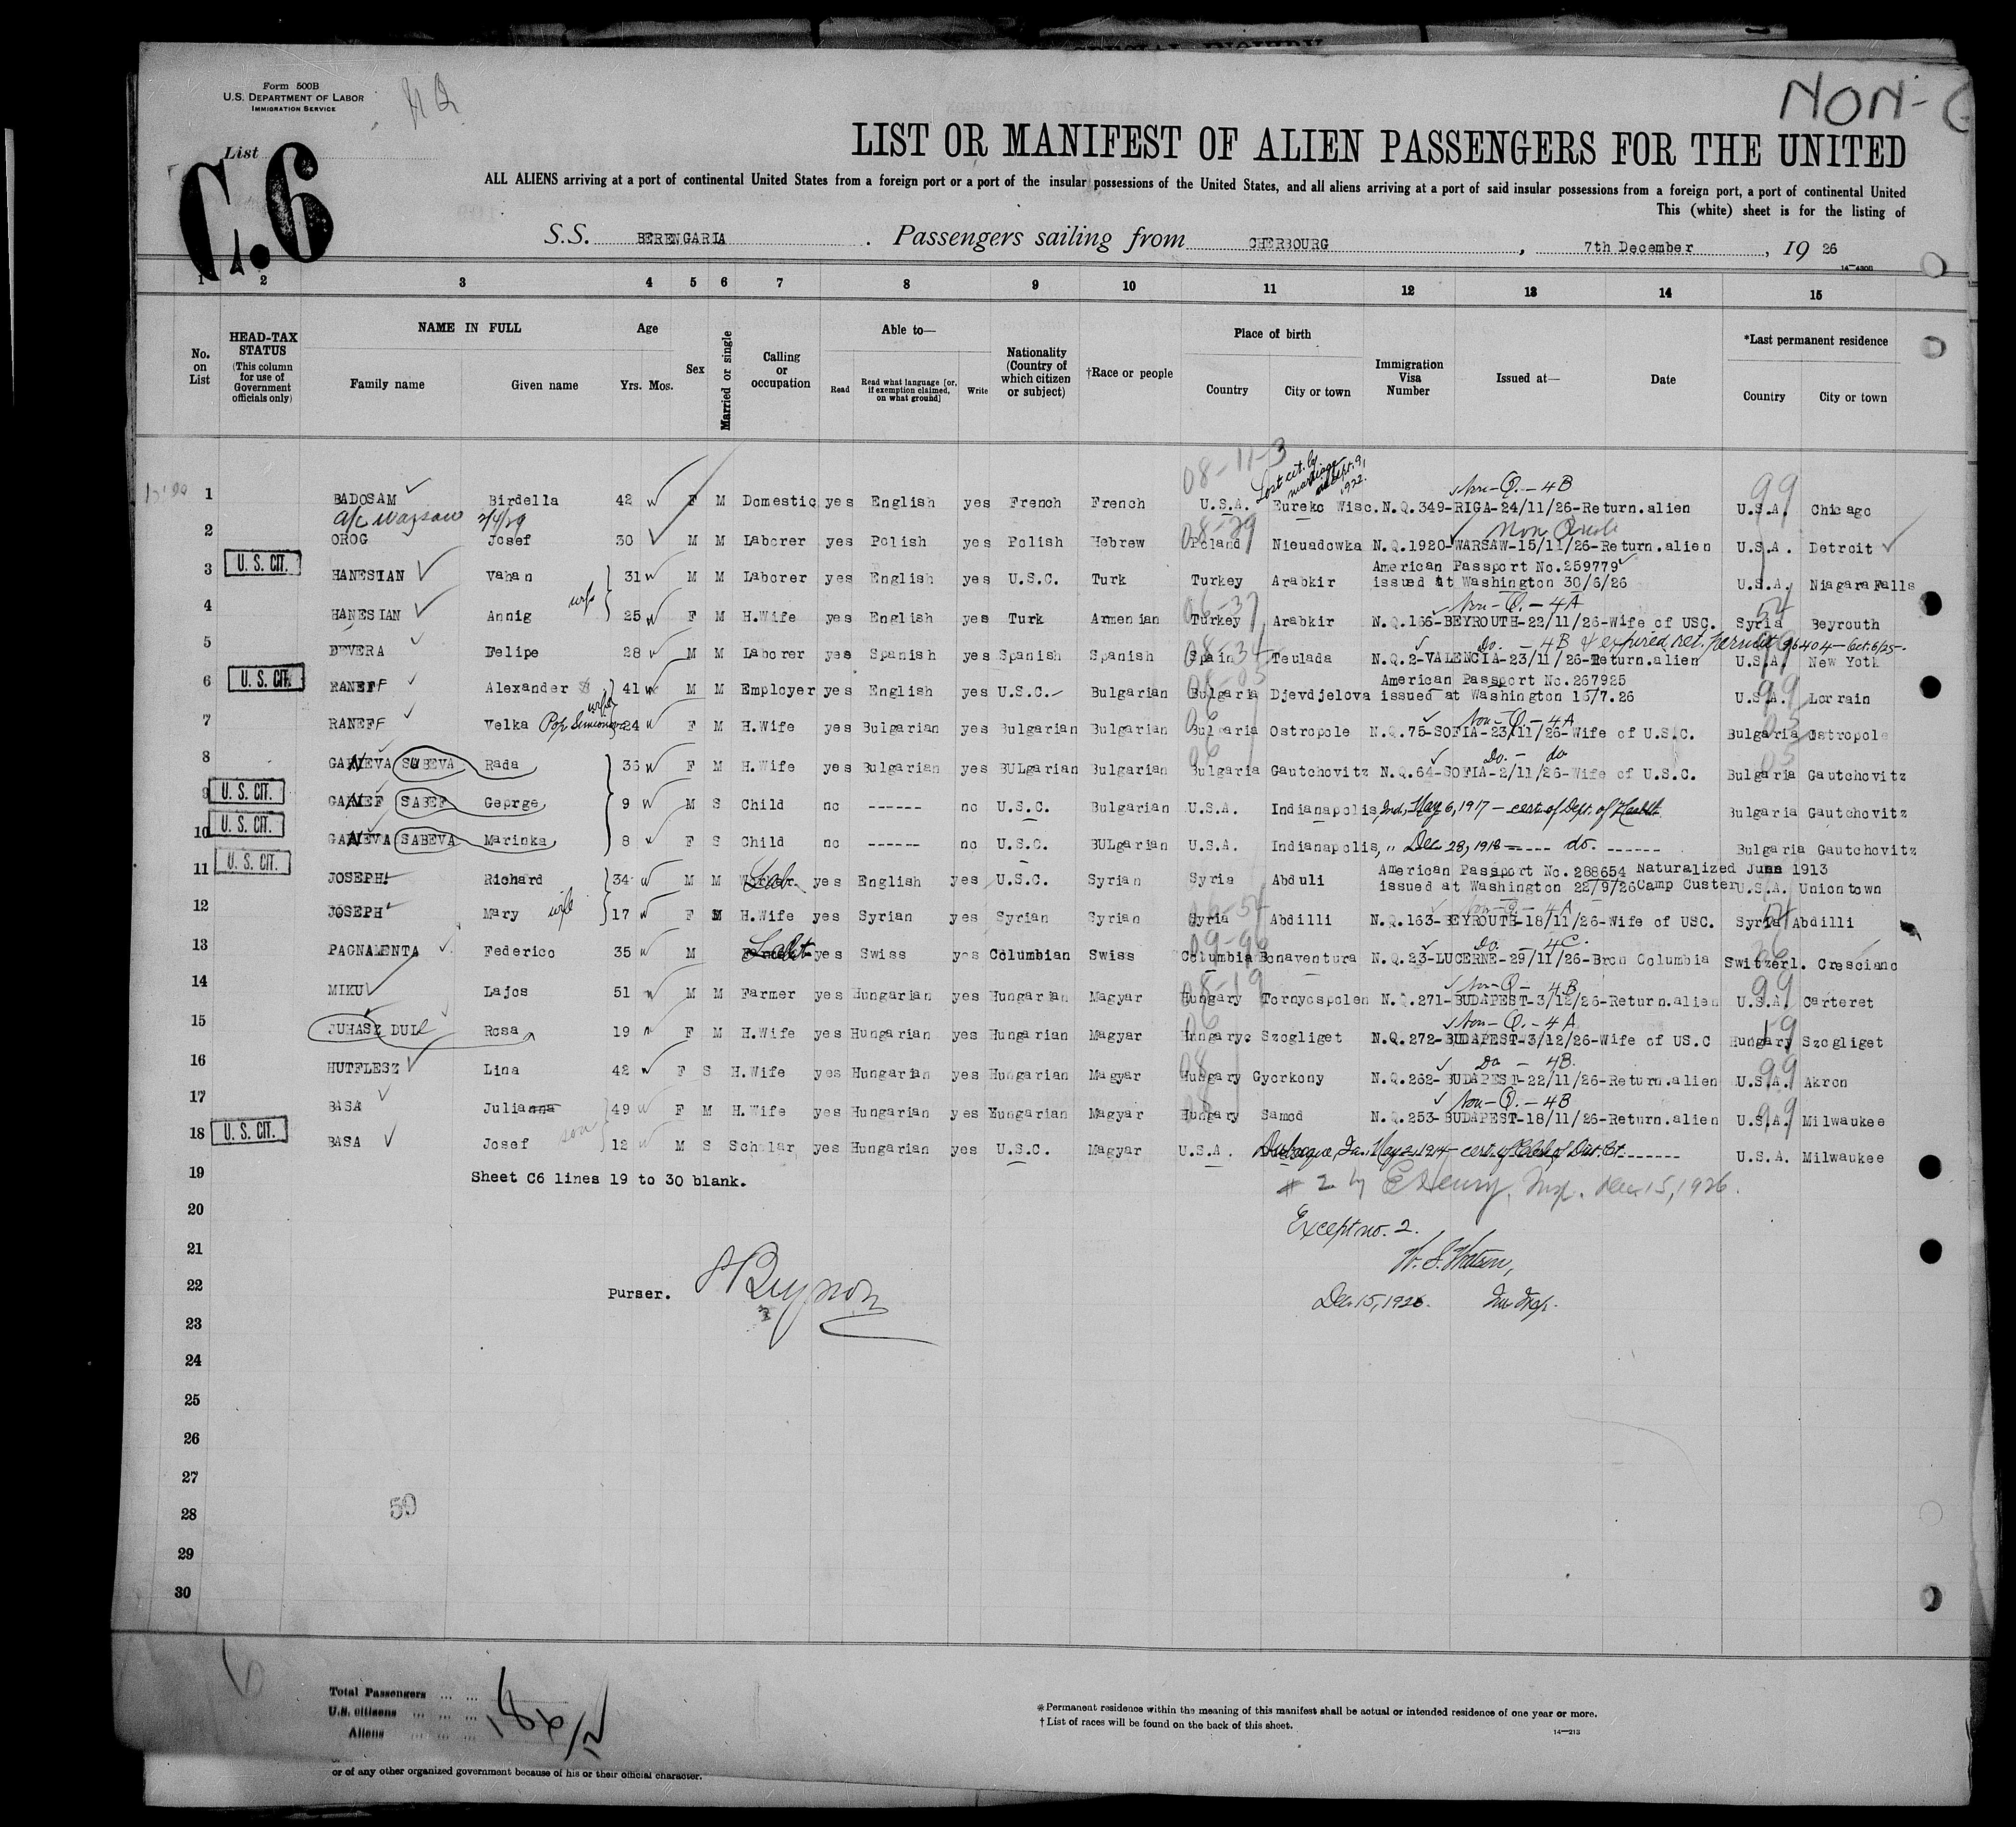 NON-
Form 500B
U.S. DEPARTMENT OF LABOR
IMMIGRATION SERVICE
List
C.6
LIST OR MANIFEST OF ALIEN PASSENGERS FOR THE UNITED
ALL ALIENS arriving at a port of continental United States from a foreign port or a port of the insular possessions of the United States, and all aliens arriving at a port of said insular possessions from a foreign port, a port of continental United
This (white) sheet is for the listing of
S.S. BERENGARIA. Passengers sailing from CHERBOURG, 7th December, 19 26
1 2 3 4 5 6 7 8 9 10 11 12 13 14 15
No. on List HEAD-TAX STATUS (This column for use of Government officials only) NAME IN FULL Family name Given name Age Yrs. Mos. Sex Married or single Calling or occupation Able to— Read Read what language [or, if exemption claimed, on what ground] Write Nationality (Country of which citizen or subject) †Race or people Place of birth Country City or town Immigration Visa Number Issued at— Date *Last permanent residence Country City or town
08-11-3 Lost cit. by marriage Sept. 9, 1922. Non-Q.-4B 99
1 BADOSAM Birdella 42 F M Domestic yes English yes French French U.S.A. Eureko Wisc. N.Q.349-RIGA-24/11/26-Return.alien U.S.A. Chicago
a/c Warsaw 2/4/29 Non Quota
2 OROG Josef 30 M M Laborer yes Polish yes Polish Hebrew Poland Nieuadowka N.Q.1920-WARSAW-15/11/26-Return.alien U.S.A. Detroit
U. S. CIT. American Passport No.259779
3 HANESIAN Vahan 31 M M Laborer yes English yes U.S.C. Turk Turkey Arabkir issued at Washington 30/6/26 U.S.A. Niagara Falls
wife Non-Q.-4A
4 HANESIAN Annig 25 F M H.Wife yes English yes Turk Armenian Turkey Arabkir N.Q.166-BEYROUTH-22/11/26-Wife of USC. Syria Beyrouth
Do. - 4B & expired ret. permit 96404-Oct.6/25-
5 DEVERA Felipe 28 M M Laborer yes Spanish yes Spanish Spanish Spain Teulada N.Q.2-VALENCIA-23/11/26-Return.alien U.S.A. New York
U. S. CIT. American Passport No.267925
6 RANEFF Alexander 41 M M Employer yes English yes U.S.C. Bulgarian Bulgaria Djevdjelova issued at Washington 15/7.26 U.S.A. Lorrain
wife Non-Q.-4A
7 RANEFF Velka 24 F M H.Wife yes Bulgarian yes Bulgarian Bulgarian Bulgaria Ostropole N.Q.75-SOFIA-23/11/26-Wife of U.S.C. Bulgaria Ostropole
Do. - do
8 GANEVA SABEVA Rada 36 F M H.Wife yes Bulgarian yes BULgarian Bulgarian Bulgaria Gautchovitz N.Q.64-SOFIA-2/11/26-Wife of U.S.C. Bulgaria Gautchovitz
U. S. CIT.
9 SABEF Geprge 9 M S Child no ------ no U.S.C. Bulgarian U.S.A. Indianapolis, Ind., May 6, 1917 - cert. of Dept. of Health Bulgaria Gautchovitz
U. S. CIT.
10 SABEVA Marinka 8 F S Child no ------ no U.S.C. BULgarian U.S.A. Indianapolis, " Dec 28, 1918 ---- do. ------ Bulgaria Gautchovitz
U. S. CIT. American Passport No. 288654 Naturalized June 1913
11 JOSEPH Richard 34 M M Lab. yes English yes U.S.C. Syrian Syria Abduli issued at Washington 22/9/26 Camp Custer U.S.A. Uniontown
wife Non-Q-4A
12 JOSEPH Mary 17 F M H.Wife yes Syrian yes Syrian Syrian Syria Abdilli N.Q.163-BEYROUTH-18/11/26-Wife of USC. Syria Abdilli
Do. 4C.
13 PAGNALENTA Federico 35 M yes Swiss yes Columbian Swiss Columbia Bonaventura N.Q.23-LUCERNE-29/11/26-Bron Columbia Switzerl. Cresciano
Non-Q-4B
14 MIKU Lajos 51 M M Farmer yes Hungarian yes Hungarian Magyar Hungary Tornyospolen N.Q.271-BUDAPEST-3/12/26-Return.alien U.S.A. Carteret
Non-Q.-4A
15 JUHASZ DULL Rosa 19 F M H.Wife yes Hungarian yes Hungarian Magyar Hungary. Szogliget N.Q.272-BUDAPEST-3/12/26-Wife of US.C Hungary Szogliget
Do - 4B.
16 HUTFLESZ Lina 42 F S H.Wife yes Hungarian yes Hungarian Magyar Hungary Gyorkony N.Q.262-BUDAPEST-22/11/26-Return.alien U.S.A. Akron
Non-Q.-4B
17 BASA Julianna 49 F M H.Wife yes Hungarian yes Hungarian Magyar Hungary Samod N.Q.253-BUDAPEST-18/11/26-Return.alien U.S.A. Milwaukee
U. S. CIT. son
18 BASA Josef 12 M S Scholar yes Hungarian yes U.S.C. Magyar U.S.A. Dubuque, Ia. May 2, 1914 - cert. of Clerk of Dist. Ct. ------- U.S.A. Milwaukee
19 Sheet C6 lines 19 to 30 blank.
# 2 by Insp. Dec 15, 1926.
20
Except no. 2.
21
W. S. Watson,
22 Purser.
Dec 15, 1926. Insp.
23
24
25
26
27
28 50
29
30
Total Passengers ... ...
U.S. citizens ... ... ...
Aliens ... ... ...
*Permanent residence within the meaning of this manifest shall be actual or intended residence of one year or more.
†List of races will be found on the back of this sheet.
14—213
or of any other organized government because of his or their official character.